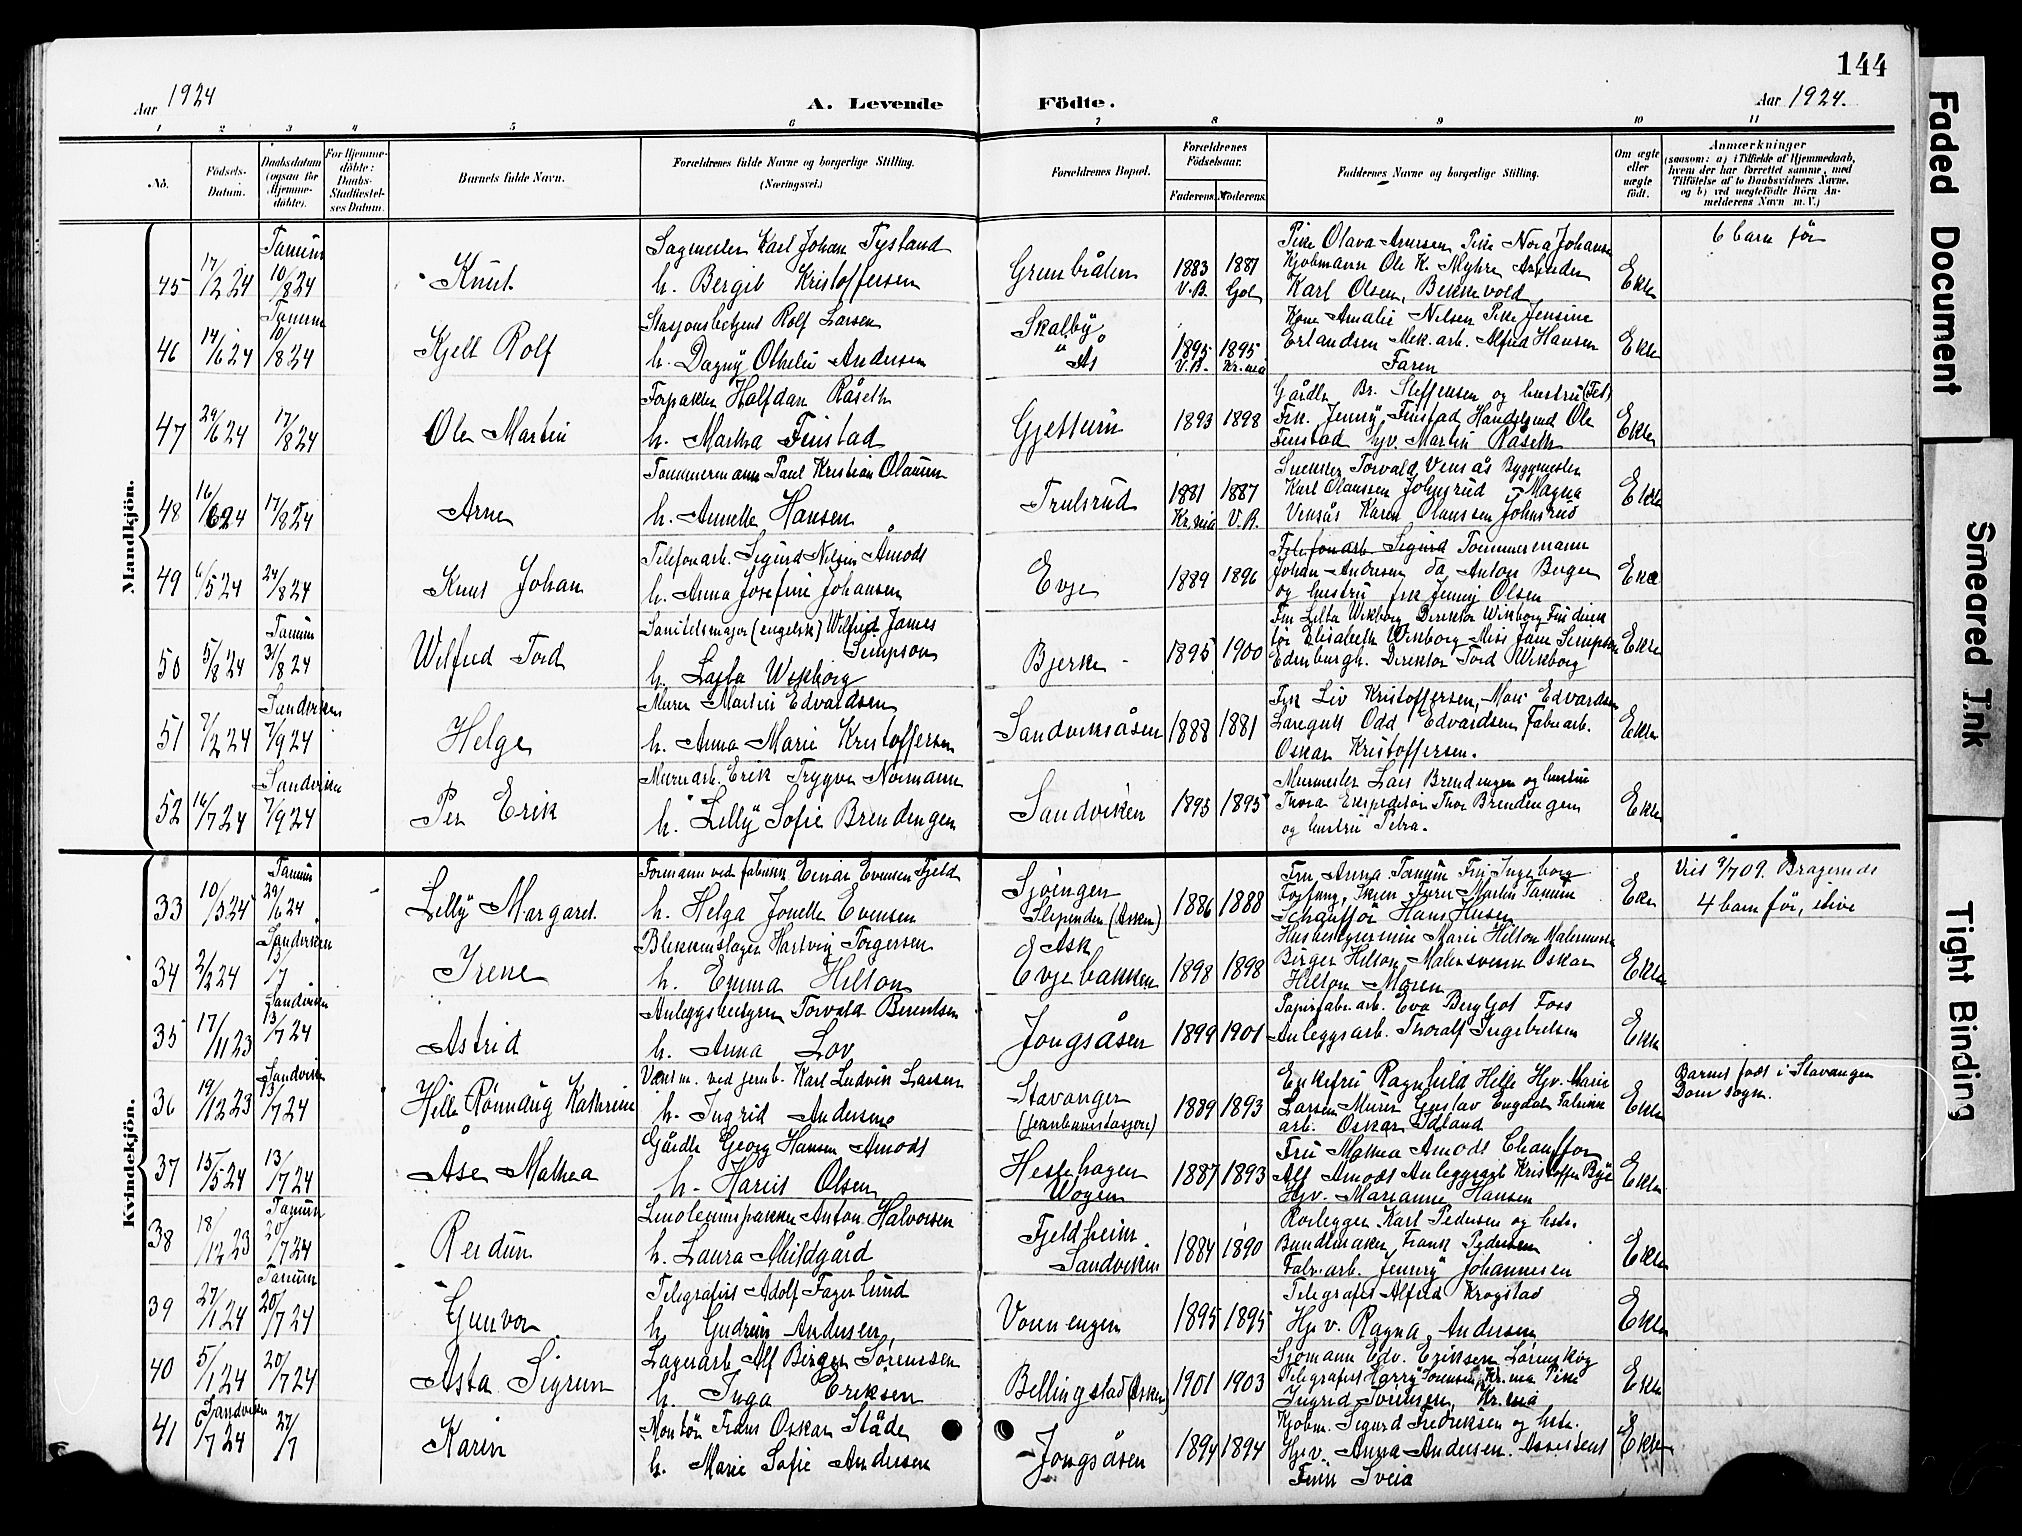 144
Aar 1924
A. Levende
Födte.
Aar 1924.
1 2 3 4 5 6 7 8 9 10 11
No.
Födsels-
Datum.
Daabsdatum
(ogsaa for
Hjemme-
döbte).
For Hjemme-
döbte:
Daabs-
Stadfæstel-
ses Datum.
Barnets fulde Navn.
Forældrenes fulde Navne og borgerlige Stilling.
(Næringsvei.)
Forældrenes Bopæl.
Forældrenes
Födselsaar.
Faderens. Moderens.
Faddernes Navne og borgerlige Stilling.
Om ægte
eller
uægte
födt.
Anmærkninger
(saasom: a) i Tilfælde af Hjemmedaab,
hvem der har forrettet samme, med
Tilföielse af to Daabsvidners Navne,
og b) ved uægtefödte Börn An-
melderens Navn m. V.)
Mandkjön.
45 17/2 24 Tanum 10/8 24 Knut
Karl Johan Tysland
h. Bergit Kristoffersen
1883 V.B. 1881 Gol
Pike Olava Pike Nora
Kjøbmann Ole K. Myhre
Karl Olsen,
Ekte
6 barn før
46 14/6 24 Tanum 10/8 24 Kjell Rolf
Rolf Larsen
h. Dagny Othelie Andersen
Skalby
Ås
1895 V.B. 1895 Kr.nia
Kone Amalie Nilsen Pike Jensine
Erlandsen Mek. arb. Alfred Hansen
Faren
Ekte
47 29/6 24 17/8 24 Ole Martin
Forpakter Halfdan Råseth
h. Martha Finstad
Gjettum
1893 1898
Gårdbr. Br. Steffensen og hustru
Frk. Jenny Finstad Ole
Finstad hjv. Martin Råseth
Ekte
48 16/6 24 17/8 24 Arne
Tømmermann Paul Kristian
h. Annette Hansen
Trulsrud
1881 Kr.nia 1887 V.B.
Snekker Torvald Venås Byggmester
Karl Olaussen Johnsrud Magna
Venås Karen Olaussen Johnsrud
Ekte
49 6/5 24 24/8 24 Knut Johan
Telefonarb. Sigurd Nilsen Åmodt
h. Anna Josefine Johansen
Evje
1889 1896
Telefonarb. Sigurd Tømmermann
Johan Andersen do Anton Berger
og hustru frk Jenny Olsen
Ekte
50 5/8 24 Tanum 31/8 24 Wilfred Tord
Sanitetsmajor (engelsk) Wilfred James
Simpson
h. Wikborg
Bjerke
1895 1900
Wikborg Direktør Wikborg
Elisabeth Wikborg Miss Jane Simpson
Edinburgh. Direktør Tord Wikborg
Ekte
51 7/2 24 Sandviken 7/9 24 Helge
Murer Martin Edvardsen
h. Anna Marie Kristoffersen
Sandviksåsen
1888 1881
Frk Liv Kristoffersen, Edvardsen
Odd Edvardsen, Fabrarb.
Oskar Kristoffersen.
Ekte
52 16/7 24 Sandviken 7/9 24 Per Erik
Murerarb. Erik Trygve Normann
h. Lilly Sofie Brendengen
Sandviken
1893 1895
Murmester Lars Brendengen og hustru
Thora Ekspeditør Thor Brendengen
og hustru Petra.
Ekte
Kvindekjön.
33 10/3 24 Tanum 29/6 24 Lilly Margaret.
Formann ved fabrikk Einar Evensen Fjeld
h. Helga Jonette Evensen
Slependen (Asker)
1886 1888
Fru Anna Tanum Fru Ingeborg
Martin Tanum
Schauffør Hans
Ekte
Viet 9/7 09. Bragernes
4 barn før, ilive
34 2/2 24 Sandviken 13/7 Irene
Blikkenslager Hartvig Torgersen
h. Emma Hilton
Ask
Evjebakken
1898 1898
Husbestyrerinne Marie Hilton
Birger Hilton Malersvenn Oskar
Hilton Moren
Ekte
35 17/11 23 Sandviken 13/7 24 Astrid
Anleggsbestyrer Torvald Berntsen
h. Anna Lov
Jongsåsen
1899 1901
Papirfabr. arb. Eva Bergljot Foss
Anleggsarb. Thoralf Ingebretsen
Ekte
36 19/12 23 Sandviken 13/7 24 Hille Rønnaug Kathrine
ved jernb. Karl Ludvik Larsen
h. Ingrid Andersen
Stavanger
(Jernbanestasjon)
1889 1893
Enkefru Ragnhild Helle Hjv. Marie
Larsen Murer Gustav Engdal Fabrikk
arb. Oskar
Ekte
Barnet født i Stavanger
Domsogn.
37 15/5 24 13/7 24 Åse Mathea
Gårdbr Georg Hansen Åmodt
h. Olsen
Hestehagen
1887 1893
Fru Mathea Åmodt Chauffør
Alf Åmodt Anleggsarb Kristoffer
Hjv. Marianne Hansen
Ekte
38 18/12 23 Tanum 20/7 24 Reidun
Linoleumspakker Anton Halvorsen
h. Laura Mildgård
Fjeldheim
Sandviken
1884 1890
Rørlegger Karl Pedersen og hstr.
Bundtmaker Frank Pedersen
Fabr. arb. Jenny Johannesen
Ekte
39 27/1 24 Tanum 20/7 24 Gunvor.
Telegrafist Adolf Fagerlund
h. Gudrun Andersen,
Vonnengen
1895 1895
Telegrafist Alfred Krogstad
Hjv. Ragna Andersen
Ekte
40 5/1 24 20/7 24 Asta Sigrun
Lagerarb Alf Birger Sørensen
h. Inga Eriksen
Bellingstad (Asker)
1901 1903
Sjømann Edv. Eriksen Lørenskog
Telegrafist Harry Sørensen Kr.nia Pike
Ingrid Sørensen, Kr.nia
Ekte
41 6/7 24 Sandviken 27/7 Karin
Montør Frans Oskar Ståde
h. Marie Sofie Andersen
Jongsåsen
1894 1894
Kjøbm. Sigurd Fredriksen og hstr.
Hjv. Anna Andersen. Assistent
Finn Sveia
Ekte
Faded Document
Smeared Ink
Tight Binding